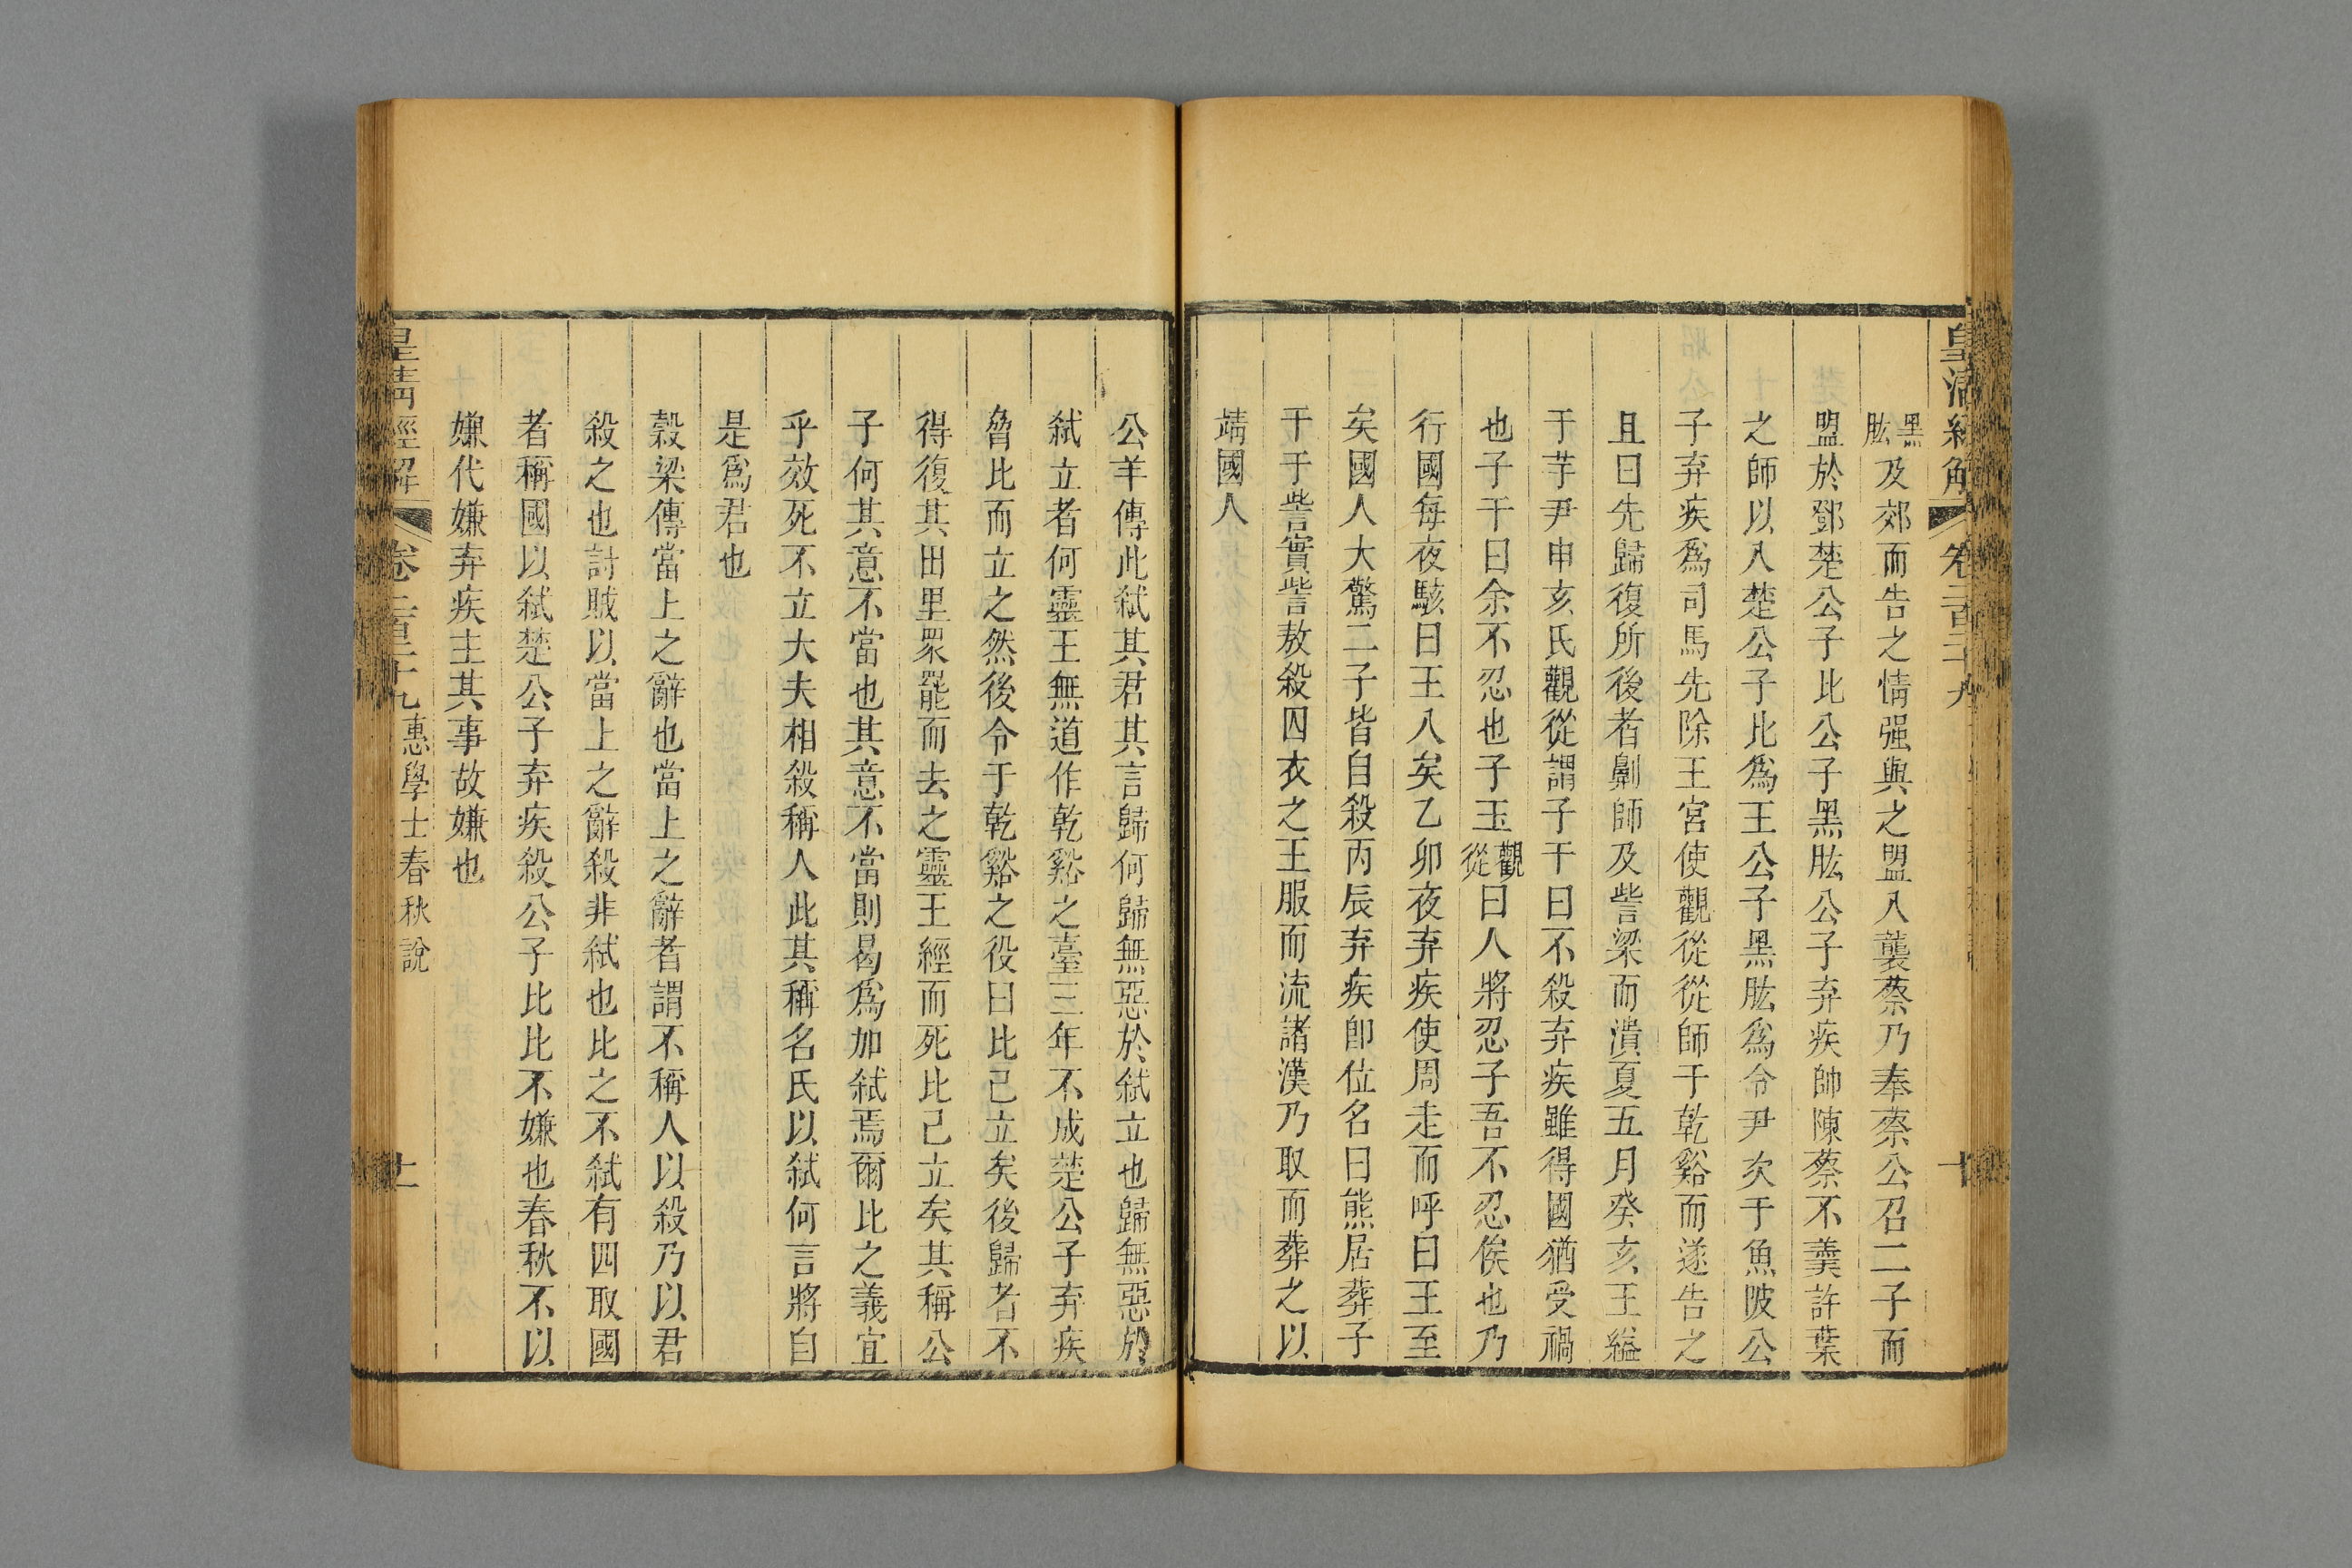 皇清經解 卷二百三十九 十
黑肱及郊而告之情强與之盟入襲蔡乃奉蔡公召二子而
盟於鄧楚公子比公子黑肱公子弃疾帥陳蔡不羹許葉
之師以入楚公子比爲王公子黑肱爲令尹次于魚陂公
子弃疾爲司馬先除王宮使觀從從師于乾谿而遂告之
且曰先歸復所後者劓師及訾梁而潰夏五月癸亥王縊
于芋尹申亥氏觀從謂子干曰不殺弃疾雖得國猶受禍
也子干曰余不忍也子玉觀從曰人將忍子吾不忍俟也乃
行國每夜駭曰王入矣乙卯夜弃疾使周走而呼曰王至
矣國人大驚二子皆自殺丙辰弃疾卽位名曰熊居葬子
干于訾實訾敖殺囚衣之王服而流諸漢乃取而葬之以
靖國人
公羊傳此弑其君其言歸何歸無惡於弑立也歸無惡於
弑立者何靈王無道作乾谿之臺三年不成楚公子弃疾
脅比而立之然後令于乾谿之役曰比已立矣後歸者不
得復其田里眾罷而去之靈王經而死比已立矣其稱公
子何其意不當也其意不當則曷爲加弑焉爾比之義宜
乎效死不立大夫相殺稱人此其稱名氏以弑何言將自
是爲君也
穀梁傳當上之辭也當上之辭者謂不稱人以殺乃以君
殺之也討賊以當上之辭殺非弑也比之不弑有四取國
者稱國以弑楚公子弃疾殺公子比比不嫌也春秋不以
嫌代嫌弃疾主其事故嫌也
皇清經解 卷二百三十九 惠學士春秋說 十一